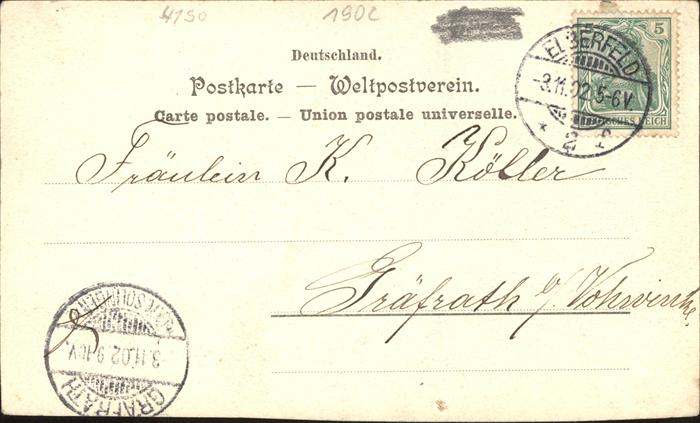 4190 1902
5
ELBERFELD
-3.11.02.5-6V.
* 2
DEUTSCHES REICH
Deutschland.
Postkarte — Weltpostverein.
Carte postale. — Union postale universelle.
Fräulein K. Köller
Gräfrath b/ Vohwinkel.
3.11.02 9-10V.
GRÄFRATH